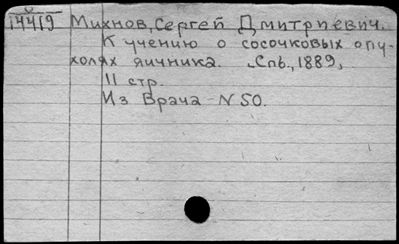 14419 Михнов, Сергей Дмитриевич.
К учению о сосочковых опу-
холях яичника. Спб., 1889,
11 стр.
Из Врача N 50.